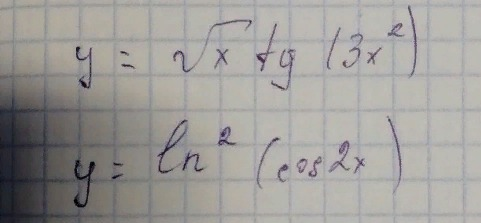 y = √x tg (3x²)
y = ln² (cos2x)